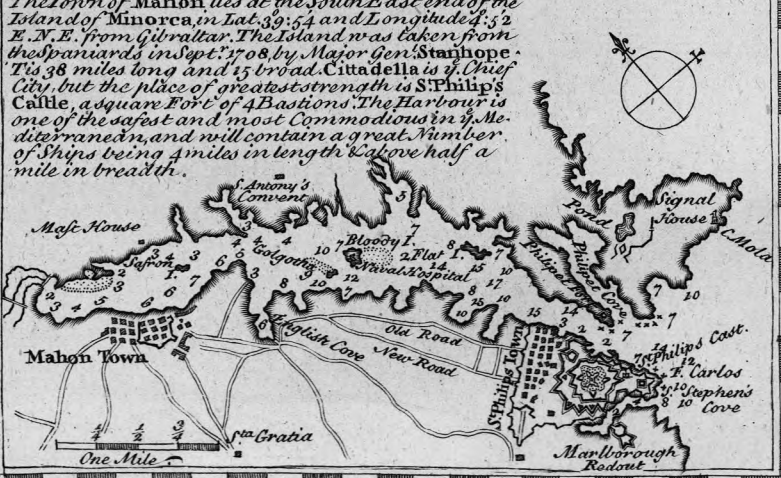 The Town of Mahon lies at the South East end of the
Island of Minorca, in Lat. 39:54 and Longitude 4:52
E.N.E. from Gibraltar. The Island was taken from
the Spaniards in Septr. 1708, by Major Genl. Stanhope.
Tis 38 miles long and 15 broad. Cittadella is ye. Chief
City, but the place of greatest strength is St. Philip's
Castle, a square Fort of 4 Bastions. The Harbour is
one of the safest and most Commodious in ye. Me-
diterranean, and will contain a great Number
of Ships being 4 miles in length & above half a
mile in breadth.
S. Antony's
Convent
Mast House
Safron I.
Golgotha
Bloody I.
Naval Hospital
Flat I.
Philipet Point
Philipet Cove
Pond
Signal
House
C. Mola
Mahon Town
English Cove
Old Road
New Road
St. Philips Town
St. Philips Cast.
F. Carlos
S. Stephen's
Cove
Marlborough
Redout
Sta. Gratia
1/4 1/2 3/4
One Mile